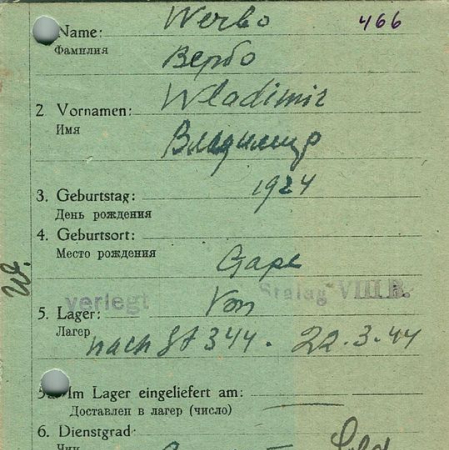 Name: Werbo 466
Фамилия Вербо
2 Vornamen: Wladimir
Имя Владимир
3. Geburtstag: 1924
День рождения
4. Geburtsort:
Место рождения
W.
verlegt Von Stalag VIII B.
5. Lager:
Лагерь nach St 344. 22.3.44
Im Lager eingeliefert am:
Доставлен в лагер (число)
6. Dienstgrad:
Чин